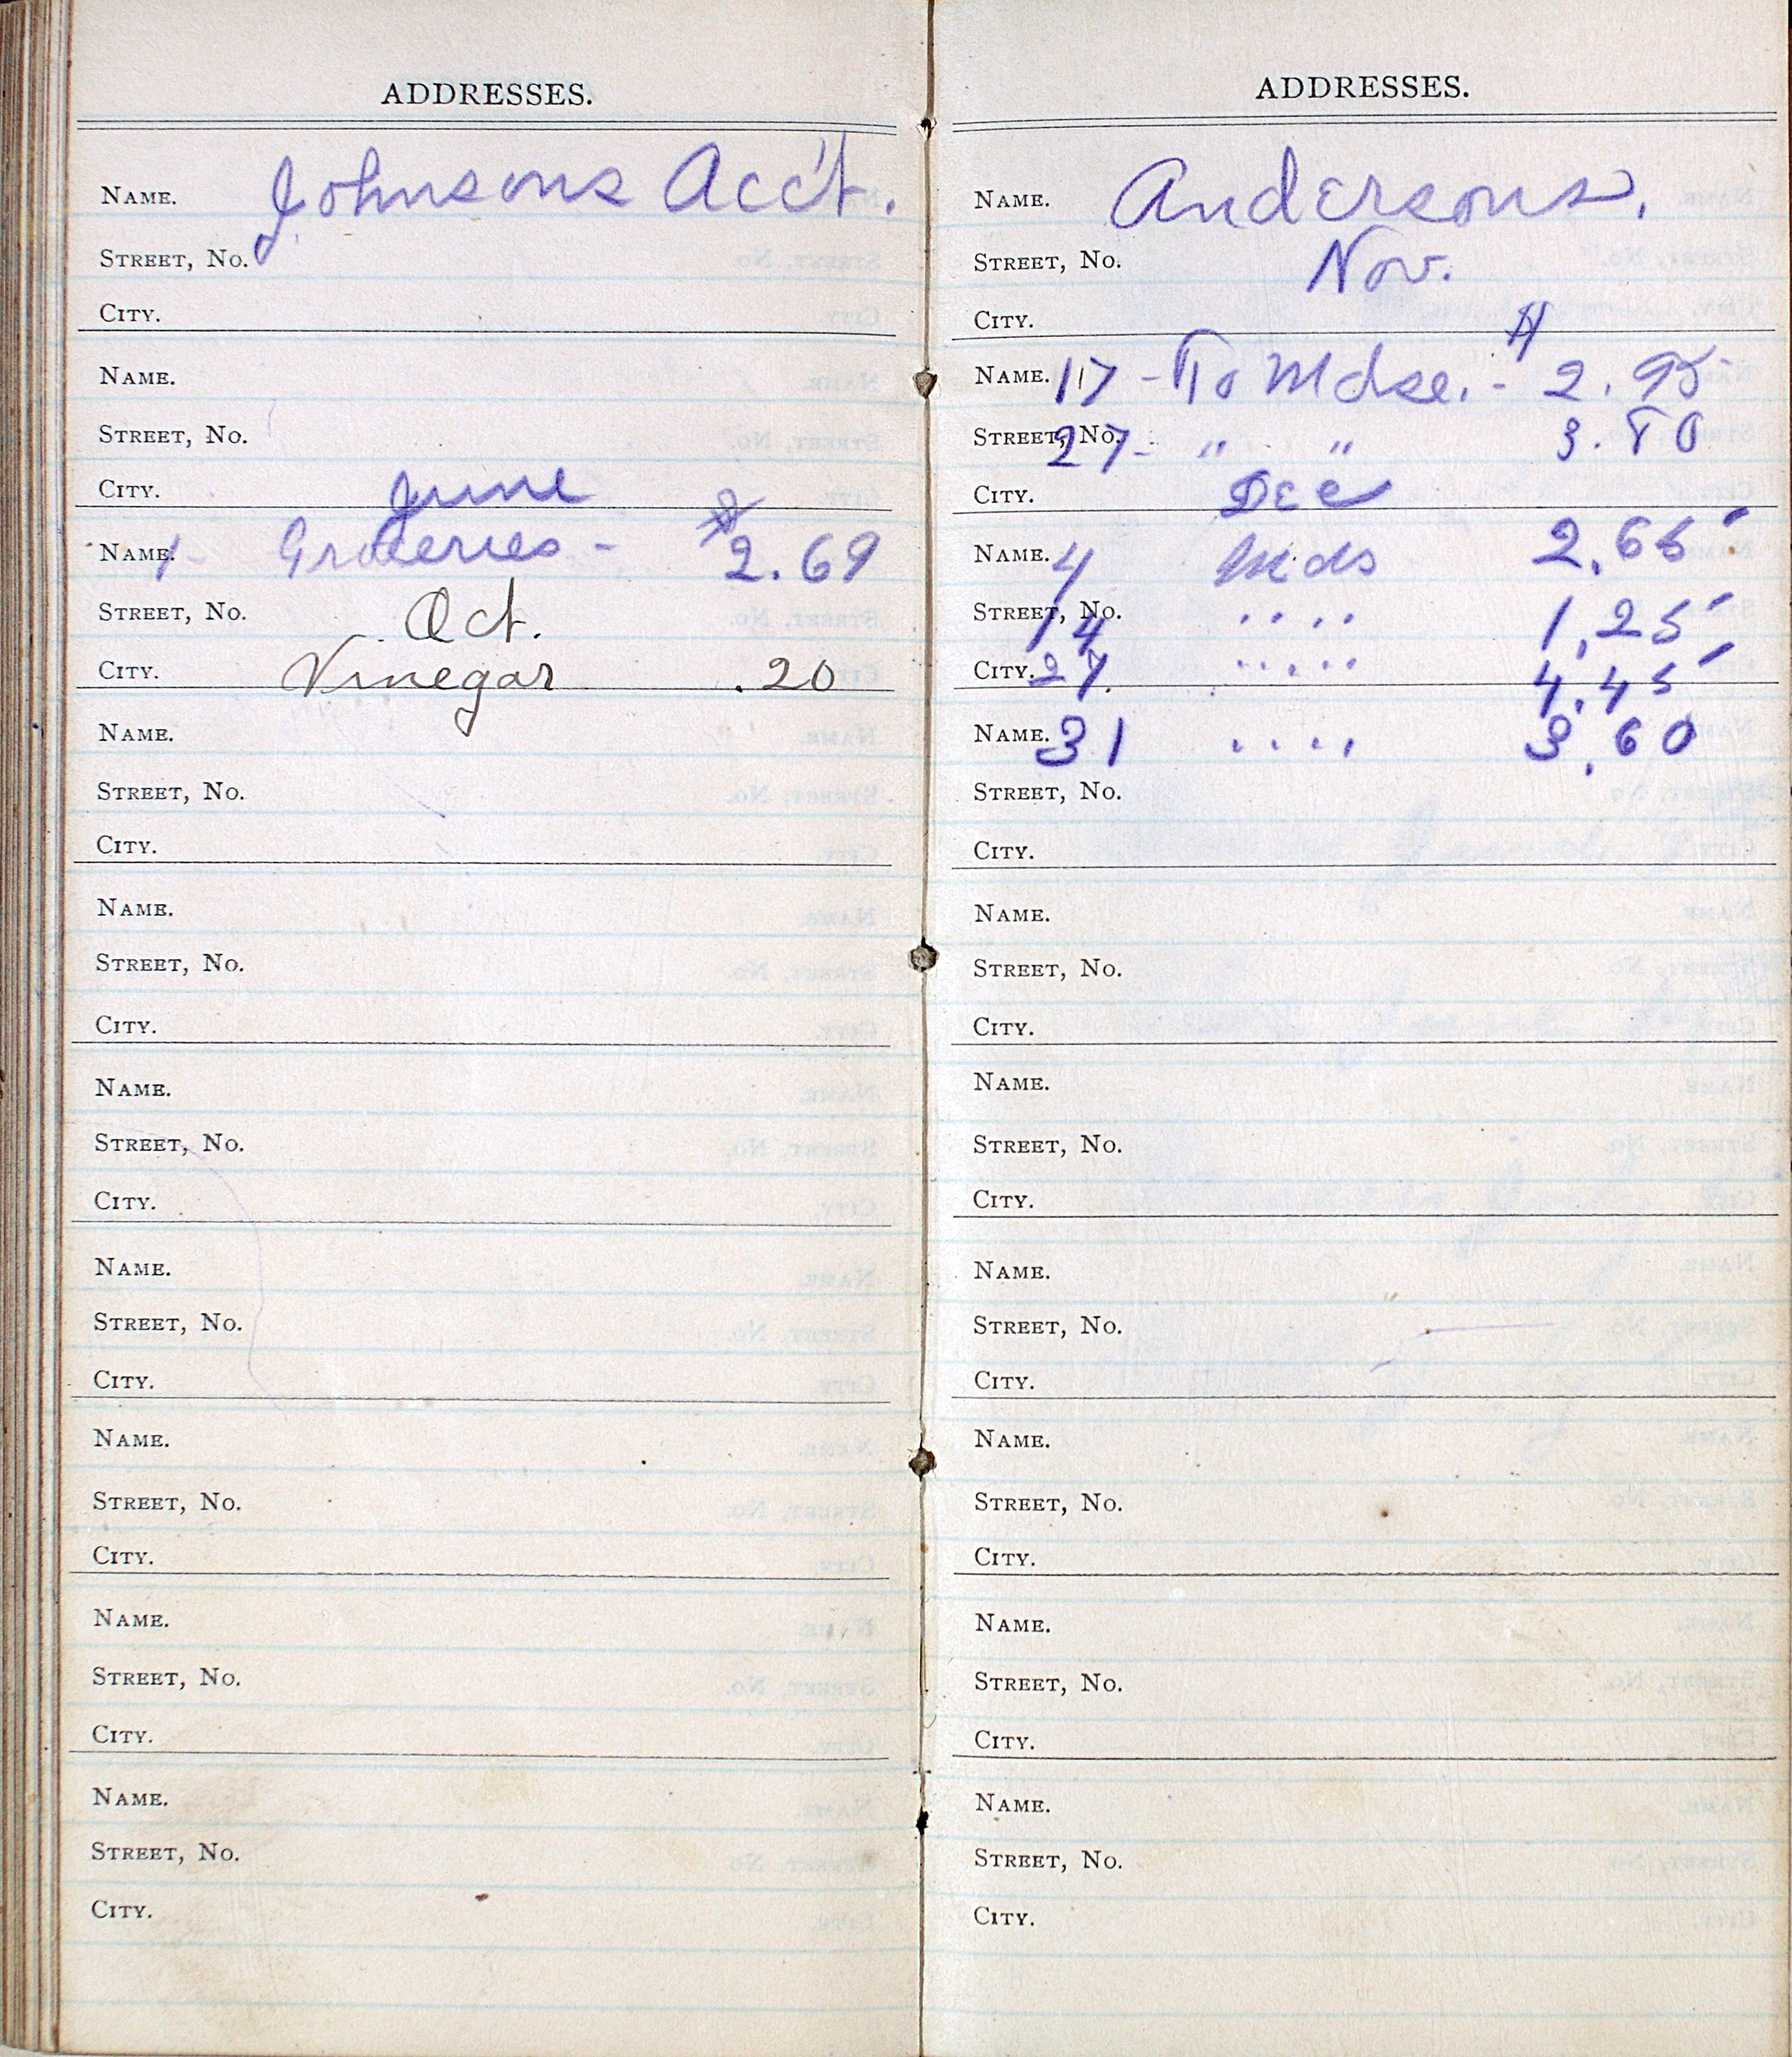 ADDRESSES.
NAME. Johnsons Acc't.
STREET, No.
CITY.
NAME.
STREET, No.
CITY. June
NAME. 1- Groceries - $2.69
STREET, No. Oct.
CITY. Vinegar .20
NAME.
STREET, No.
CITY.
NAME.
STREET, No.
CITY.
NAME.
STREET, No.
CITY.
NAME.
STREET, No.
CITY.
NAME.
STREET, No.
CITY.
NAME.
STREET, No.
CITY.
NAME.
STREET, No.
CITY.
ADDRESSES.
NAME. Andersons.
STREET, No. Nov.
CITY.
NAME. 17 - To Mdse. - $ 2.95
STREET, No. 27- " " 3.80
CITY. Dec
NAME. 4 Mds 2.65
STREET, No. 14 " " 1.25
CITY. 27 " " 4.45
NAME. 31 " " 3.60
STREET, No.
CITY.
NAME.
STREET, No.
CITY.
NAME.
STREET, No.
CITY.
NAME.
STREET, No.
CITY.
NAME.
STREET, No.
CITY.
NAME.
STREET, No.
CITY.
NAME.
STREET, No.
CITY.